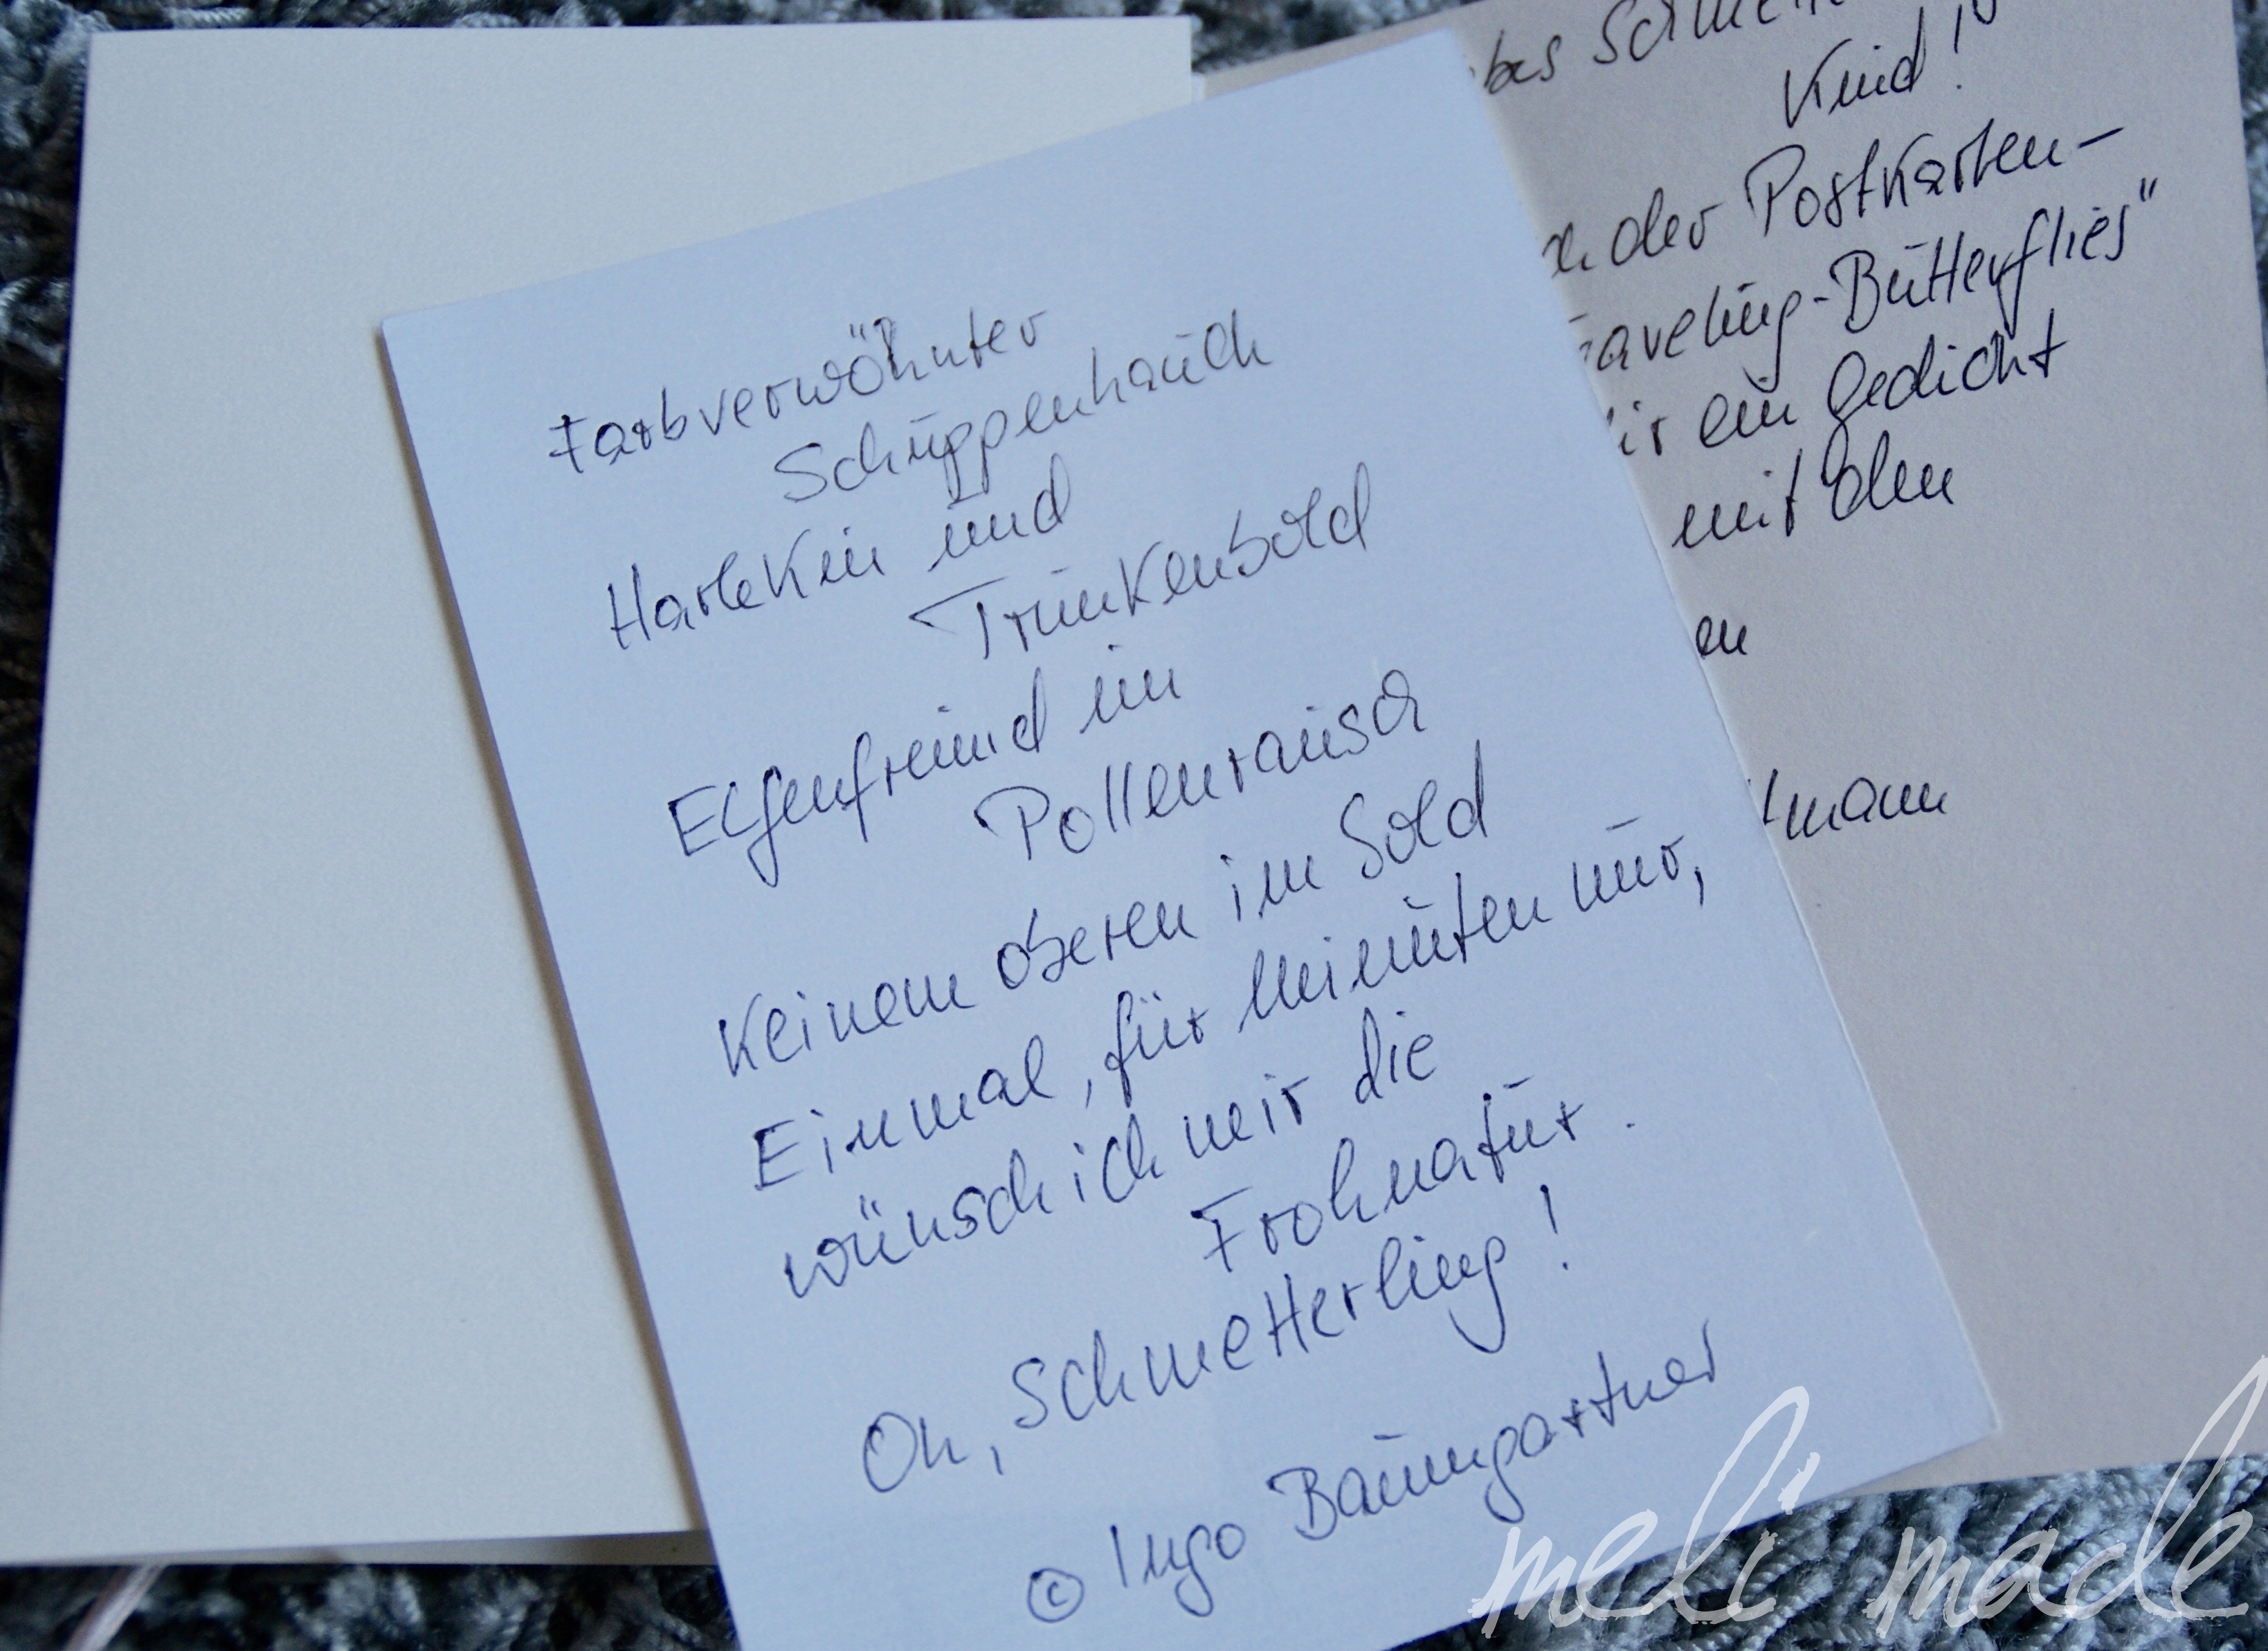 Farbverwöhnter
Schuppenhauch
Harlekin und
Trunkenbold
Elfenfreund im
Pollenrausch
Keinem oberen im Sold
Einmal, für Minuten nur,
wünsch ich mir die
Frohnatur.
Oh, Schmetterling!
© Ingo Baumgartner
Kind!
der Postkarten-
Butterflies"
ein Gedicht
mit den
meli made